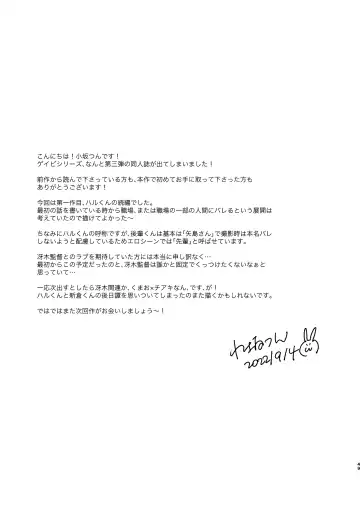 こんにちは！小坂つんです！
ゲイビシリーズ、なんと第三弾の同人誌が出てしまいました！
前作から読んで下さっている方も、本作で初めてお手に取って下さった方も
ありがとうございます！
今回は第一作目、ハルくんの続編でした。
最初の話を書いている時から職場、または職場の一部の人間にバレるという展開は
考えていたので描けてよかった〜
ちなみにハルくんの呼称ですが、後輩くんは基本は「矢島さん」で撮影時は本名バレ
しないようと配慮しているためエロシーンでは「先輩」と呼ばせています。
冴木監督とのラブを期待していた方には本当に申し訳なく…
最初からこの予定だったのと、冴木監督は誰かと固定でくっつけたくないなぁと
思っていて…
一応次出すとしたら冴木関連か、くまお×チアキなん、です、が！
ハルくんと新倉くんの後日譚を思いついてしまったのまた描くかもしれないです。
ではではまた次回作がお会いしましょう〜！
小坂つん
2022/9/4